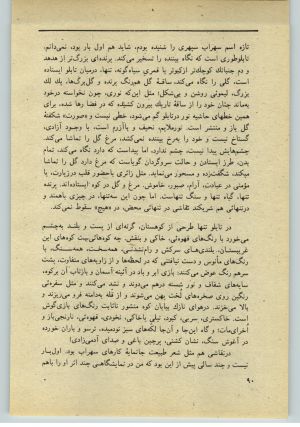 تازه اسم سهراب سپهری را شنیده بودم، شاید هم اول بار بود، نمی‌دانم،
تابلوطوری است که نگاه بیننده را تسخیر می‌کند. پرنده‌ای بزرگ‌تر از هدهد
و دم جنبانک کوچک‌تر از کبوتر یا قمری سیاه‌گونه، تنها، درمیان تابلو ایستاده
است، گلی را نگاه می‌کند، ساقهٔ گل همرنگ پرنده و گل‌برگ‌ها، یک لک
بزرگ، لیموئی روشن و بی‌شکل؛ مثل این‌که نوری، چون نخواسته درخود
بماند چنان خود را از ساقهٔ تاریک بیرون کشیده که در فضا رها شده، برای
همین خطهای حاشیه نور درتابلو گم می‌شود، خطی نیست و «صورت» شکفتهٔ
گل باز و منتشر است. نورملایم، نحیف و بی‌آزرم است، با وجود آزادی،
گستاخ نیست و خود را به‌رخ بیننده نمی‌کشد. مرغ گل را تماشا می‌کند.
چشمهایش پیدا نیست، چشم ندارد، اما پیداست که دارد نگاه می‌کند، تمام
بدن، طرز ایستادن و حالت سروگردن گویاست که مرغ دارد گل را تماشا
میکند، شگفت‌زده و مسحور می‌نماید. مثل زائری باحضور قلب درزیارت، یا
مؤمنی در عبادت، آرام، صبور، خاموش. مرغ و گل در کوه ایستاده‌اند. پرنده
تنها، گیاه تنها و سنگ تنهاست. اما چون این سه‌تنها، در چیزی باهمند و
درتنهائی هم شریکند تقاشی در تنهائی محض، در «هیچ» سقوط نمی‌کند.
در تابلو تنها طرحی از کوهستان، گرته‌ای از پست و بلند به‌چشم
می‌خورد با رنگ‌های قهوه‌ئی، خاکی و بنفش. چه کوه‌هائی‌یت کوه‌های این
رنگ‌های مأنوس و دست نیافتنی که در لحظه‌ها و از زاویه‌های متفاوت، پشت
سرهم رنگ عوض می‌کنند؛ بازی ابر و باد در آئینه آسمان و بازتاب آن برکوه،
سایه‌های شفاف و نور شسته درهم می‌دوند و نشد می‌کنند و مثل سفره‌ئی
رنگین روی صخره‌های لخت پهن می‌شوند و از قله به‌دامنه فرو می‌ریزند و
بالا می‌خزند. درهوای نازک پایان کوه منشور ناثابت رنگ‌های بازی‌گوش
است. خاکستری، سربی، کبود، نیلی باخاکی، نخودی، قهوه‌ئی، نارنجی‌باز و
در آغوش سنگ، نشان کشتی، پرچین باغی و صدای آدمی‌زادی!
درنقاشی هم مثل شعر طبیعت جانمایهٔ کارهای سهراب بود. اول‌بار
نیست و چند سالی پیش از این بود که من در نمایشگاهی چند اثر او را باهم
۹۰